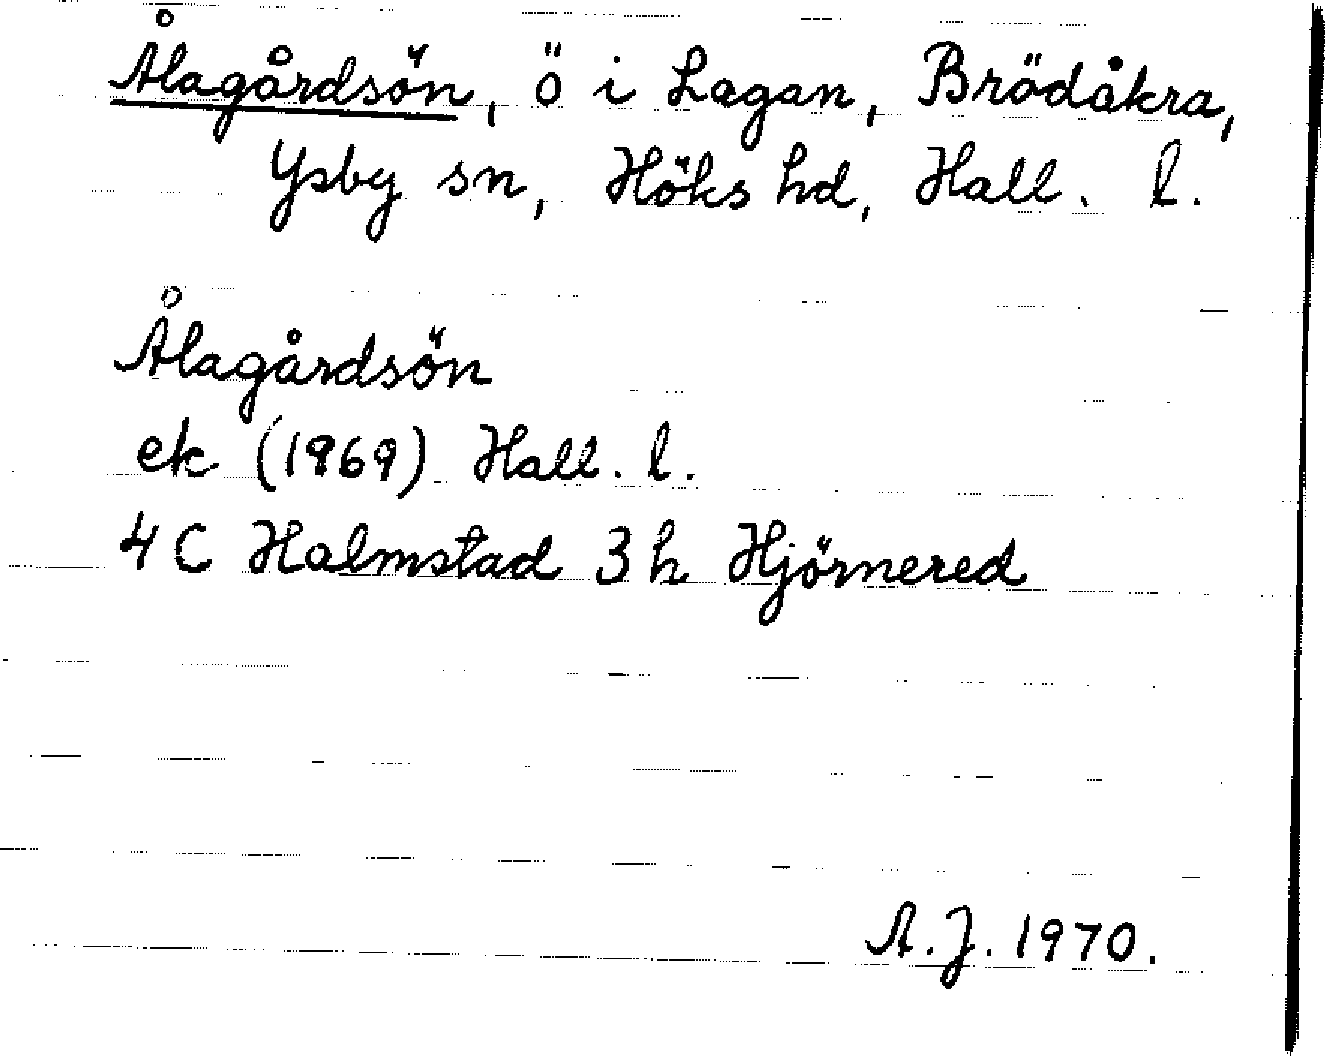 Ålagårdsön, ö i Lagan, Brödåkra,
Ysby sn, Höks hd, Hall. l.
Ålagårdsön
ek (1969) Hall. l.
4 C Halmstad 3 h Hjörnered
A.J. 1970.